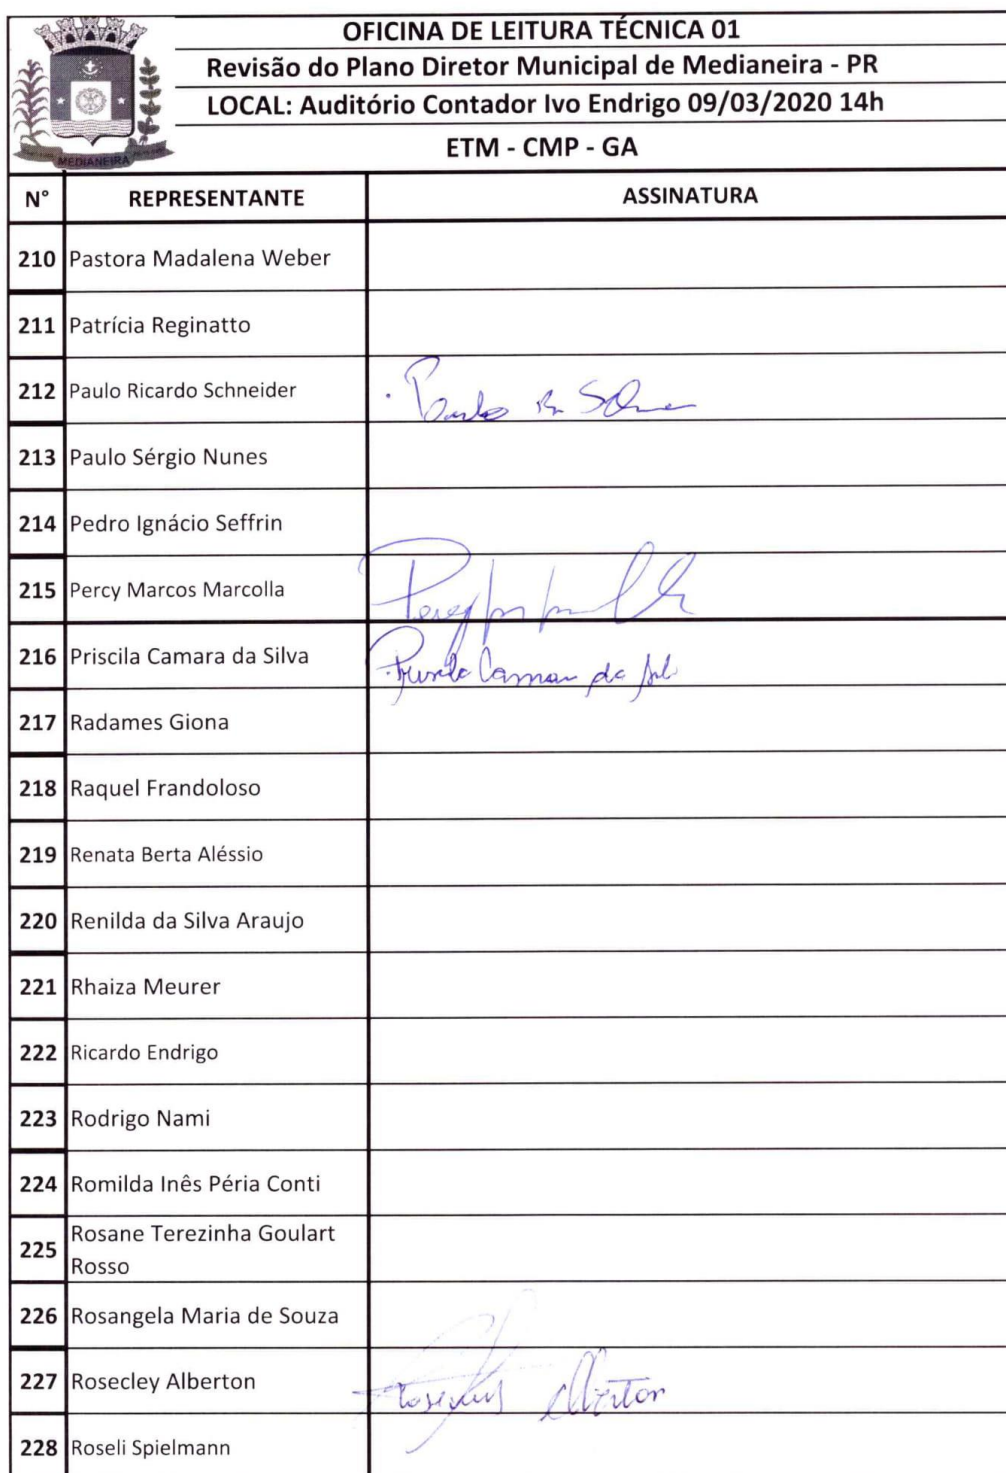 OFICINA DE LEITURA TÉCNICA 01
Revisão do Plano Diretor Municipal de Medianeira - PR
LOCAL: Auditório Contador Ivo Endrigo 09/03/2020 14h
ETM - CMP - GA
MEDIANEIRA
N° REPRESENTANTE ASSINATURA
210 Pastora Madalena Weber
211 Patrícia Reginatto
212 Paulo Ricardo Schneider Paulo R.
213 Paulo Sérgio Nunes
214 Pedro Ignácio Seffrin
215 Percy Marcos Marcolla Percy
216 Priscila Camara da Silva Priscila Camara da Silva
217 Radames Giona
218 Raquel Frandoloso
219 Renata Berta Aléssio
220 Renilda da Silva Araujo
221 Rhaiza Meurer
222 Ricardo Endrigo
223 Rodrigo Nami
224 Romilda Inês Péria Conti
225 Rosane Terezinha Goulart
Rosso
226 Rosangela Maria de Souza
227 Rosecley Alberton Rosecley Alberton
228 Roseli Spielmann